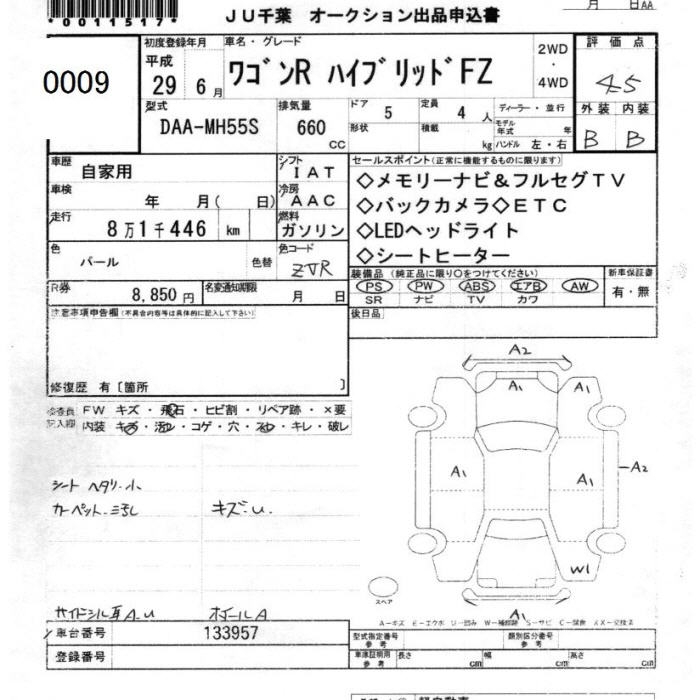 *0011517*
月 日AA
JU千葉 オークション出品申込書
0009
初度登録年月
平成
29 6月
車名・グレード
ワゴンR ハイブリッドFZ
2WD
・
4WD
評価点
4.5
外装 内装
B B
型式
DAA-MH55S
排気量
660
CC
ドア
5
定員
4人
ディーラー・並行
形状
積載
kg
モデル年式 年
ハンドル 左・右
車歴
自家用
シフト
IAT
車検
年 月( 日)
冷房
AAC
走行
8万1千446 km
燃料
ガソリン
色
パール
色替
色コード
ZVR
R券
8,850円
名変通知期限
月 日
セールスポイント(正常に機能するものに限ります)
◇メモリーナビ&フルセグTV
◇バックカメラ◇ETC
◇LEDヘッドライト
◇シートヒーター
装備品(純正品に限り○をつけてください)
PS PW ABS エアB AW
SR ナビ TV カワ
新車保証書
有・無
注意事項申告欄(不具合内容等は具体的に記入して下さい)
後日品
修復歴 有〔箇所 〕
検査員
記入欄
FW キズ・飛石・ヒビ割・リペア跡・×要
内装 キズ・汚れ・コゲ・穴・スレ・キレ・破レ
シート ヘタリ・小
カーペット汚れ
キズ・U
サイドシル耳A.U
ホイールA
A2
A1
A1
A1
A1
A1
A2
W1
A1
スペア
A-キズ E-エクボ U-凹み W-補修跡 S-サビ C-腐食 XX-交換済
車台番号
133957
登録番号
型式指定番号
参考
類別区分番号
参考
車庫証明用
参考
長さ cm
幅 cm
高さ cm
軽自動車